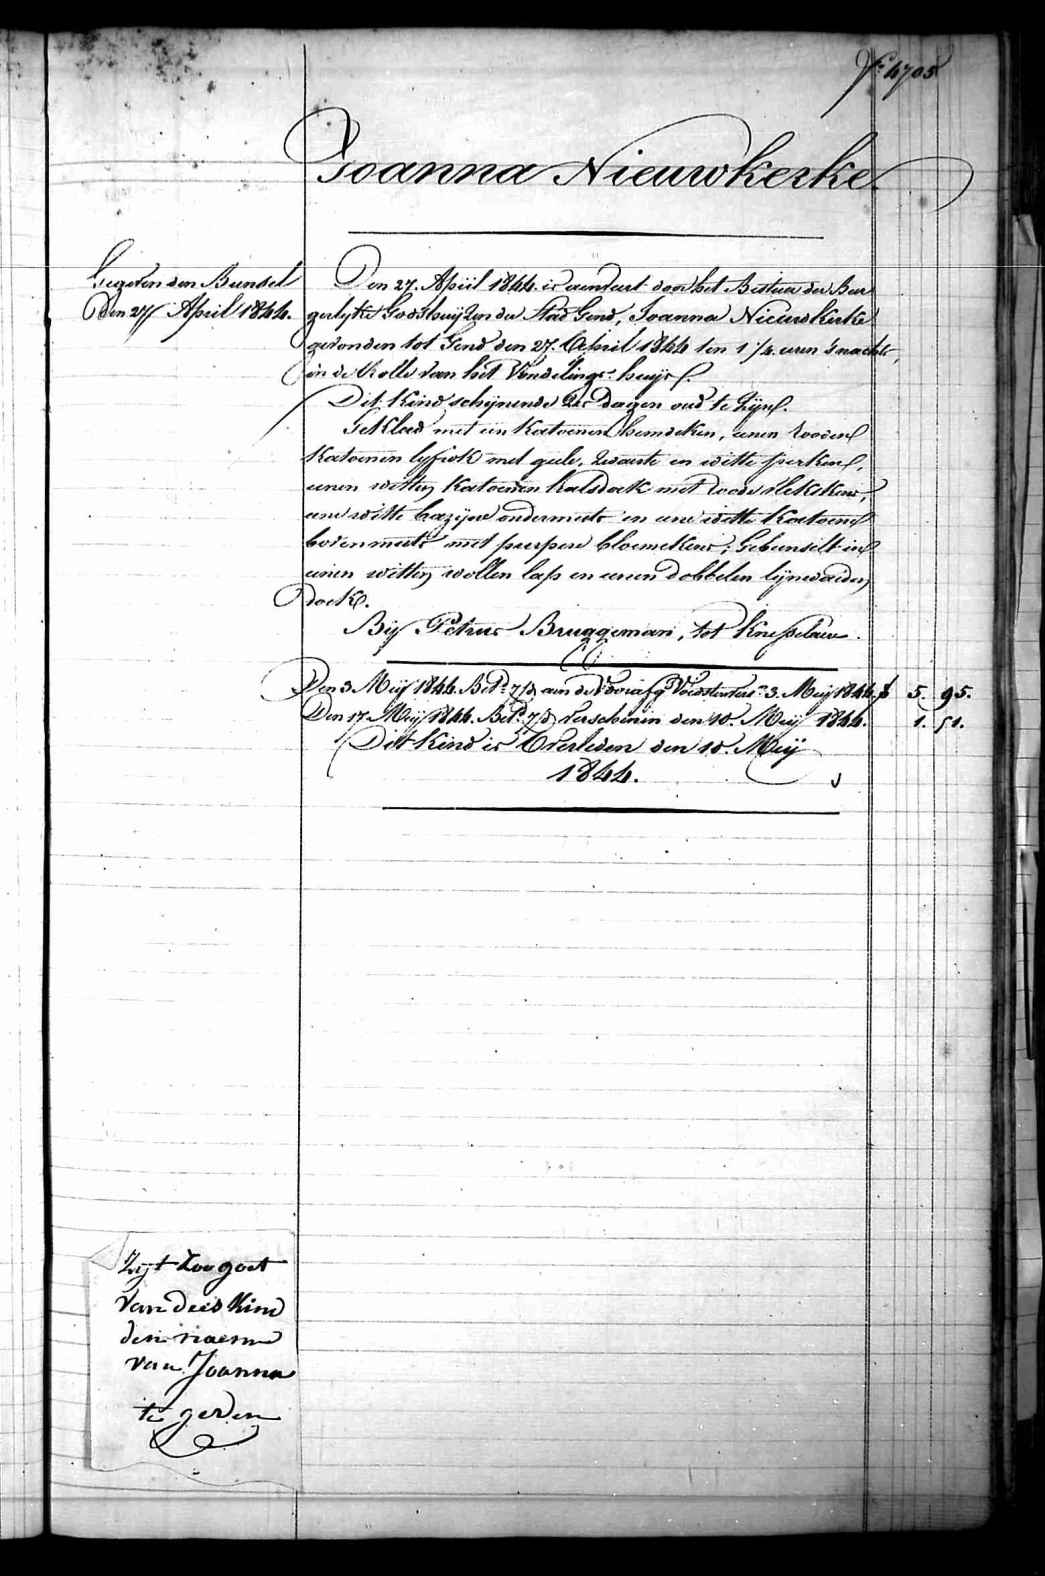 Nº 4705
Joanna Nieuwkerke.
Gegeven den Bundel
Den 27 April 1844.
Den 27. April 1844. is aenveert door het Bestuer der Bur
gerlyke Godshuijzen der Stad Gend, Joanna Nieuwkerke
gevonden tot Gend den 27. April 1844 ten 1 1/4 uren 's nachts,
in de Rolle van het Vondelings-huijs.
Dit Kind schijnende zes dagen oud te Zijn.
Gekleed met een Katoenen hemdeken, eenen rooden
Katoenen lyfrok met geele, zwarte en witte perken,
eenen witten Katoenen halsdoek met roode vlekskens,
eene witte bazijne ondermuts en eene witte Katoene
bovenmuts met purpere bloemekens; Gebunselt in
eenen witten wollen lap en eenen dobbelen lijnwaden
doek.
Bij Petrus Bruggeman, tot Knesselaere.
Den 3. Meij 1844. Bet. aen de Voorsz. Voedsterter 3. Meij 1844. f 5. 95.
Den 17. Meij 1844. Bet. verschenen den 10. Meij 1844. 1. 51.
Dit Kind is Overleden den 10. Meij
1844.
Zyt zoo goet
van dees Kind
den naem
van Joanna
te geven